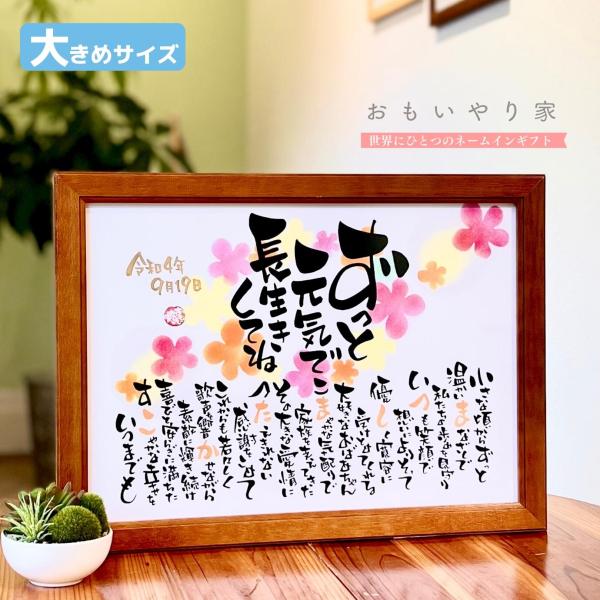 大きめサイズ
おもいやり家
世界にひとつのネームインギフト
ずっと
元気で
長生き
してね
令和4年
9月19日
小さな頃からずっと
温かいまなざしで
いつも笑顔で
優しく寛容に
大好きなおばあちゃん
こまやかな気配で
家族を支えてきた
その大きな愛情に
つたえきれない
感謝をよせて
これからも若々しく
歌声響かせながら
素敵に輝き続け
喜びと安らぎに満ちた
すこやかな幸せを
いつまでも